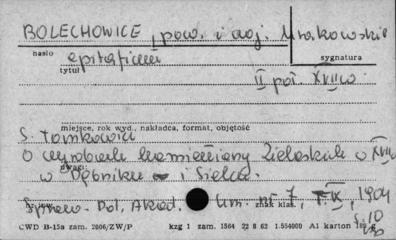 BOLECHOWICE, pow. i woj. Krakowskie
hasło
sygnatura
epitafium
tytuł
II poł. XVII w.
miejsce, rok wyd., nakładca, format, objętość
S. Tomkowicz
O wyrobach kamieniany Zielaskich w XVII
w Dębniku i Sielca.
Spraw. Pol. Akad. Um. nr 7, IX, 1904
znak klas.
s. 10
CWD B-15a zam. 2006/ZW/P kzg 1 zam. 1564 22 8 62 1.554000 A1 karton